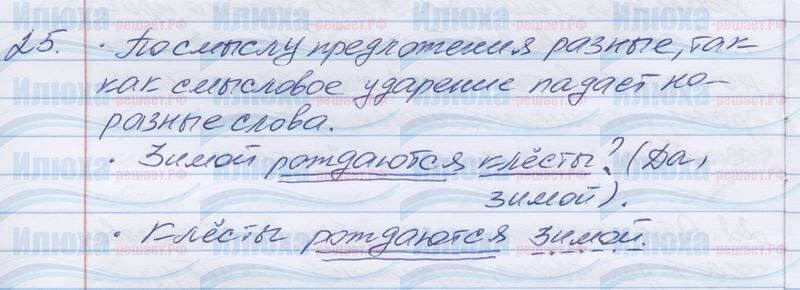 25. · По смыслу предложения разные, так-
как смысловое ударение падает на-
разные слова.
· Зимой рождаются клёсты? (Да,
зимой).
· Клёсты рождаются зимой.